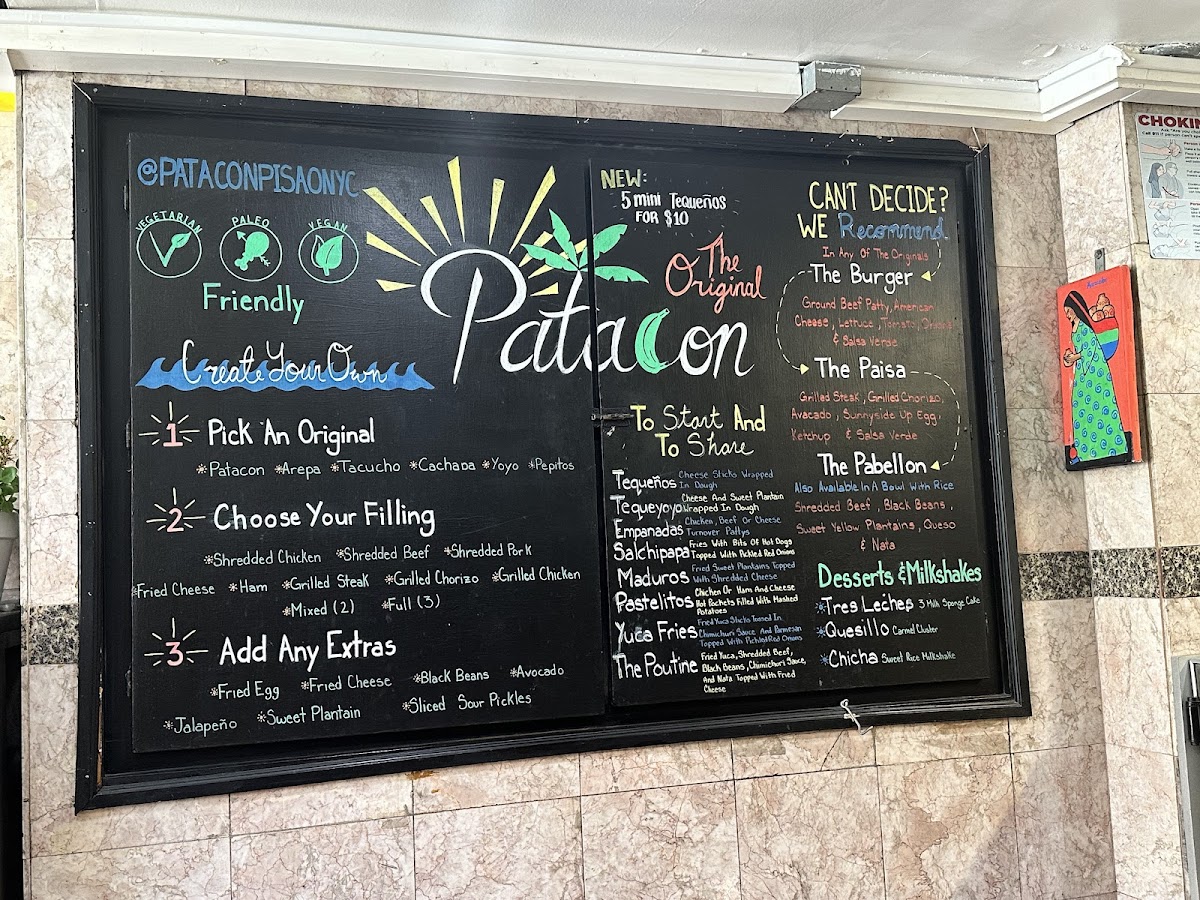 @PATACONPISAONYC
VEGETARIAN
PALEO
VEGAN
Friendly
Create Your Own
1 Pick An Original
*Patacon *Arepa *Tacucho *Cachapa *Yoyo *Pepitos
2 Choose Your Filling
*Shredded Chicken *Shredded Beef *Shredded Pork
*Fried Cheese *Ham *Grilled Steak *Grilled Chorizo *Grilled Chicken
*Mixed (2) *Full (3)
3 Add Any Extras
*Fried Egg *Fried Cheese *Black Beans *Avocado
*Jalapeño *Sweet Plantain *Sliced Sour Pickles
The
Original
Patacon
NEW:
5 mini Tequeños
FOR $10
To Start And
To Share
Tequeños Cheese Sticks Wrapped
In Dough
Tequeyoyo Cheese And Sweet Plantain
Wrapped In Dough
Empanadas Chicken, Beef Or Cheese
Turnover Pattys
Salchipapa Fries With Bits Of Hot Dogs
Topped With Pickled Red Onions
Maduros Fried Sweet Plantains Topped
With Shredded Cheese
Pastelitos Chicken Or Ham And Cheese
Hot Pockets Filled With Mashed
Potatoes
Yuca Fries Fried Yuca Sticks Tossed In
Chimichurri Sauce And Parmesan
Topped With Pickled Red Onions
The Poutine Fried Yuca, Shredded Beef,
Black Beans, Chimichuri Sauce,
And Nata Topped With Fried
Cheese
CAN'T DECIDE?
WE Recommend
In Any Of The Originals
The Burger
Ground Beef Patty, American
Cheese, Lettuce, Tomato,
& Salsa Verde
The Paisa
Grilled Steak, Grilled Chorizo,
Avocado, Sunnyside Up Egg,
Ketchup & Salsa Verde
The Pabellon
Also Available In A Bowl With Rice
Shredded Beef, Black Beans,
Sweet Yellow Plantains, Queso
& Nata
Desserts & Milkshakes
*Tres Leches 3 Milk Sponge Cake
*Quesillo Carmel Cluster
*Chicha Sweet Rice Milkshake
CHOKIN